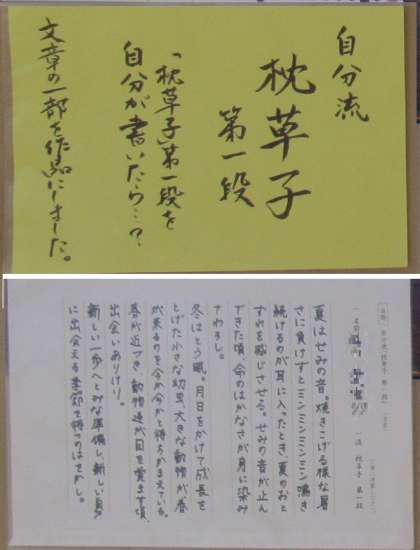 自分流
枕草子
第一段
「枕草子」第一段を
自分が書いたら…?
文章の一部を作品にしました。
流 枕草子 第一段
夏はせみの音。焼きこげる様な暑
さに負けずとミンミンミンミン鳴き
続けるのが耳に入ったとき、夏のおと
ずれを感じさせる。せみの音が止ん
できた頃、命のはかなさが身に染み
さわろし。
冬はとう眠。月日をかけて成長を
とげた小さな幼虫、大きな動物が春
が来るのを今か今かと待ちかまえている。
春が近づき、動物達が目を覚ます頃
出会いありけり。
新しい一歩へとみな準備し、新しい自分
に出会える季節を待つのはをかし。